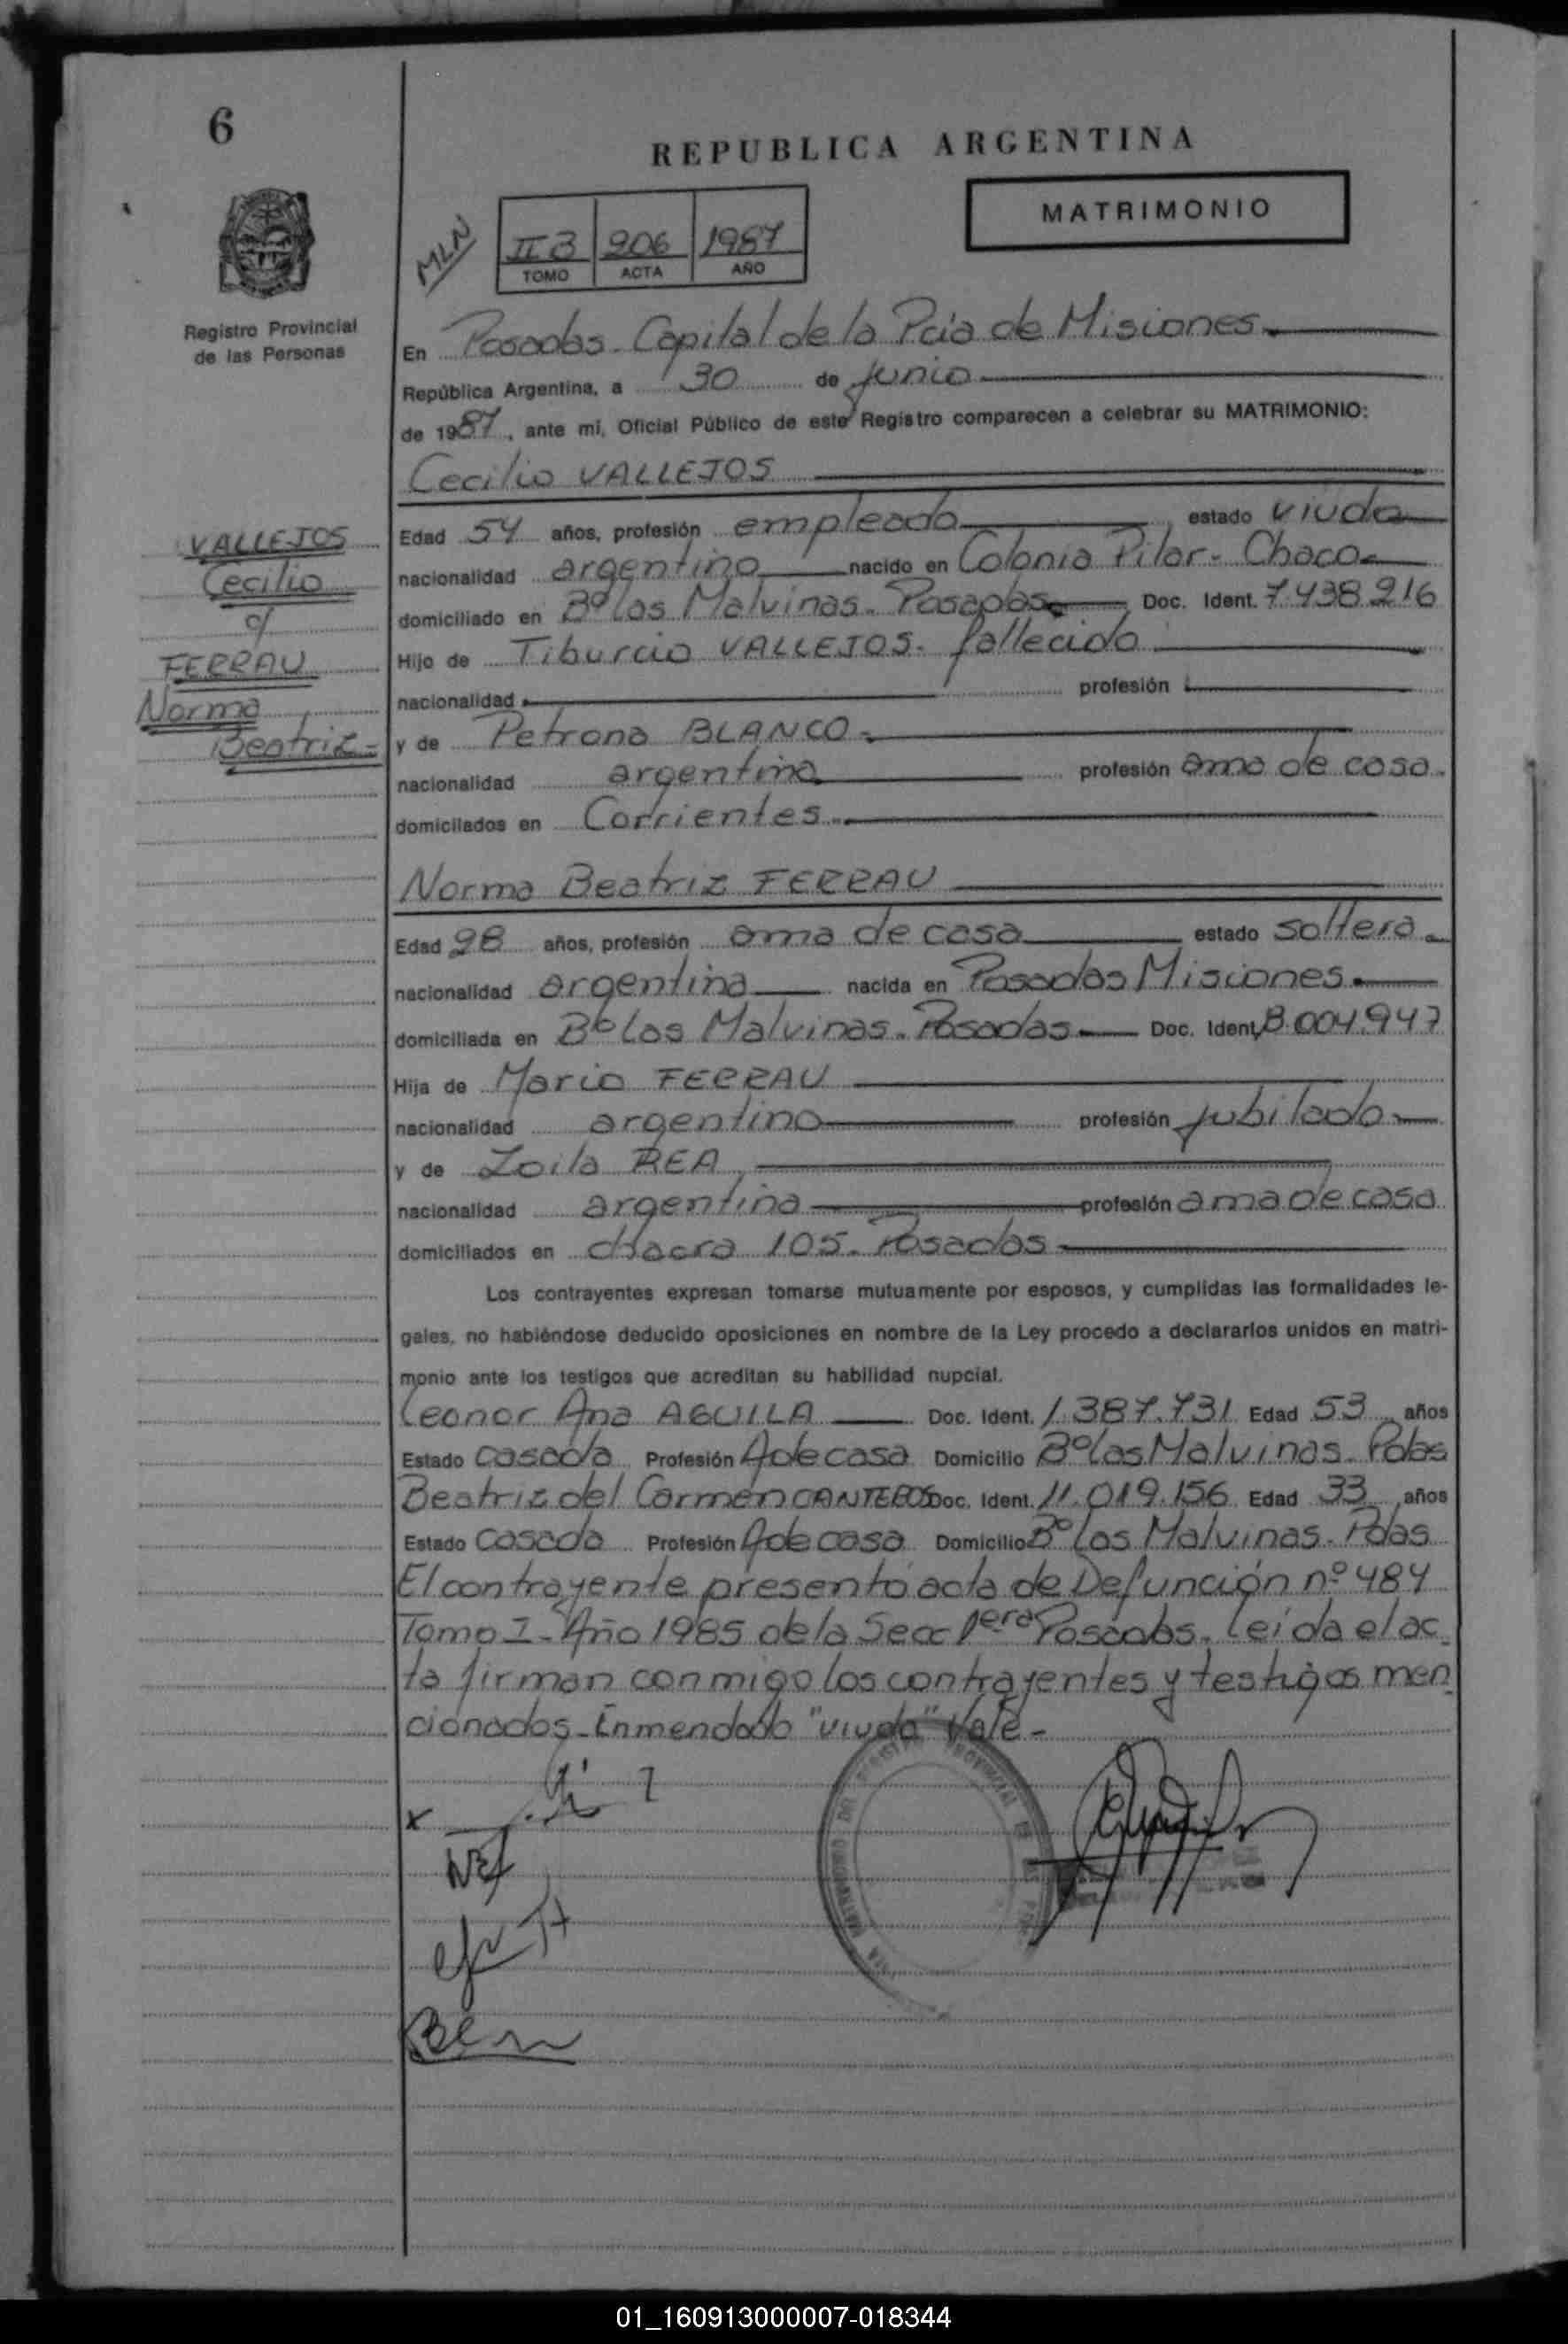 6
REPUBLICA ARGENTINA
MATRIMONIO
MLN
II B 206 1987
TOMO ACTA AÑO
Registro Provincial
de las Personas
En Posadas. Capital de la Pcia de Misiones
República Argentina, a 30 de junio
de 1987, ante mi, Oficial Público de este Registro comparecen a celebrar su MATRIMONIO:
Cecilio VALLEJOS
VALLEJOS
Cecilio
c/
FERRAU
Norma
Beatriz-
Edad 54 años, profesión empleado estado viudo
nacionalidad argentino nacido en Colonia Pilar- Chaco
domiciliado en Bº Las Malvinas. Posadas Doc. Ident. 7.438.216
Hijo de Tiburcio VALLEJOS. fallecido
nacionalidad profesión
y de Petrona BLANCO
nacionalidad argentina profesión ama de casa.
domiciiados en Corrientes
Norma Beatriz FERRAU
Edad 28 años, profesión ama de casa estado soltera
nacionalidad argentina nacida en Posadas Misiones
domiciliada en Bº Las Malvinas. Posadas Doc. Ident, 8.004.947
Hija de Mario FERRAU
nacionalidad argentino profesión jubilado
y de Zoila REA
nacionalidad argentina profesión ama de casa
domiciliados en chacra 105. Posadas
Los contrayentes expresan tomarse mutuamente por esposos, y cumplidas las formalidades le-
gales, no habiéndose deducido oposiciones en nombre de la Ley procedo a declararlos unidos en matri-
monio ante los testigos que acreditan su habilidad nupcial.
Leonor Ana AGUILA Doc. Ident. 1.387.731 Edad 53 años
Estado casada Profesión A de casa Domicilio Bº Las Malvinas. Pdas
Beatriz del Carmen CANTEROS Doc. Ident. 11.019.156 Edad 33 años
Estado casada Profesión A de casa Domicilio Bº Las Malvinas. Pdas
El contrayente presentó acta de Defunción nº 484
Tomo I- Año 1985 de la Secc 1era Posadas. Leída el ac-
ta firman conmigo los contrayentes y testigos men
cionados. Enmendado "viudo" Vale-
x
01_160913000007-018344